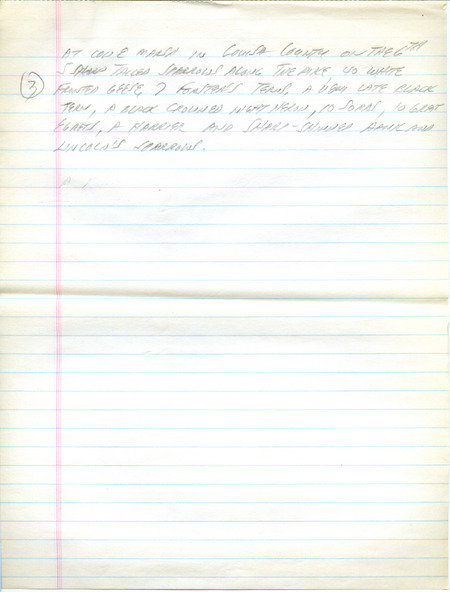 AT CONE MARSH IN LOUISA COUNTY ON THE 6TH
5 SHARP TAILED SPARROWS ALONG THE DIKE, 40 WHITE
(3) FRONTED GEESE, 7 FORSTER'S TERNS, A VERY LATE BLACK
TERN, A BLACK CROWNED NIGHT HERON, 10 SORAS, 10 GREAT
EGRETS, A HARRIER AND SHARP-SHINNED HAWK AND
LINCOLN'S SPARROWS.